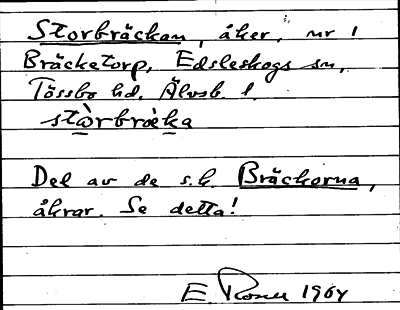 Storbräckan, åker, nr 1
Bräcketorp, Edsleskogs sn,
Tössbo hd. Älvsb. l.
stòrbràka
Del av de s.k. Bräckorna,
åkrar. Se detta!
E. Rosell 1964